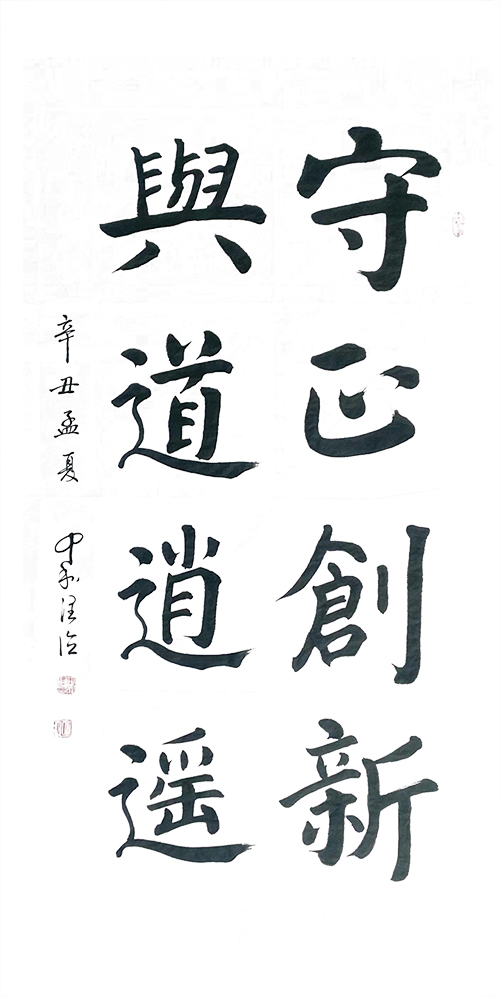 守正創新
與道逍遥
辛丑孟夏